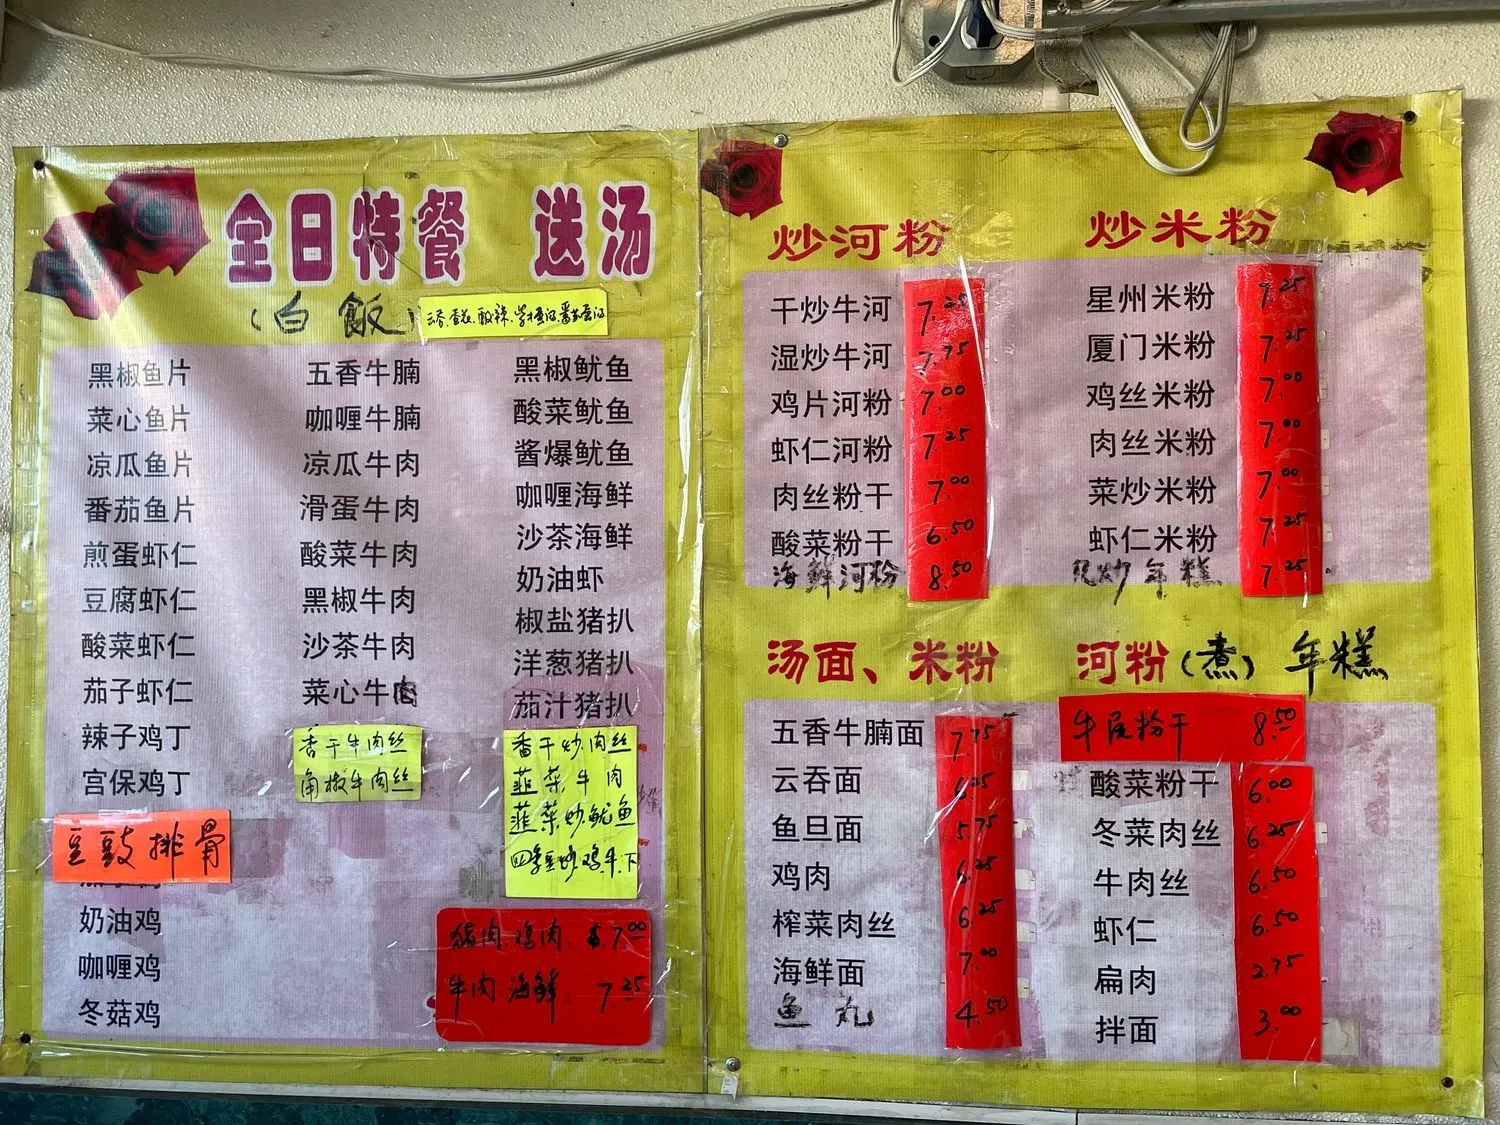 全日特餐 送汤
(白飯)
黑椒鱼片
菜心鱼片
凉瓜鱼片
番茄鱼片
煎蛋虾仁
豆腐虾仁
酸菜虾仁
茄子虾仁
辣子鸡丁
宫保鸡丁
豆豉排骨
奶油鸡
咖喱鸡
冬菇鸡
五香牛腩
咖喱牛腩
凉瓜牛肉
滑蛋牛肉
酸菜牛肉
黑椒牛肉
沙茶牛肉
菜心牛肉
香干牛肉丝
角椒牛肉丝
黑椒鱿鱼
酸菜鱿鱼
酱爆鱿鱼
咖喱海鲜
沙茶海鲜
奶油虾
椒盐猪扒
洋葱猪扒
茄汁猪扒
香干炒肉丝
韮菜牛肉
韮菜炒鱿鱼
四季豆炒鸡.牛.下
猪肉.鸡肉. 7.00
牛肉.海鲜. 7.25
炒河粉
干炒牛河 7.25
湿炒牛河 7.75
鸡片河粉 7.00
虾仁河粉 7.25
肉丝粉干 7.00
酸菜粉干 6.50
海鲜河粉 8.50
炒米粉
星州米粉 7.25
厦门米粉 7.25
鸡丝米粉 7.00
肉丝米粉 7.00
菜炒米粉 7.00
虾仁米粉 7.25
炒年糕 7.25
汤面、米粉
五香牛腩面 7.75
云吞面 6.25
鱼旦面 5.75
鸡肉 6.25
榨菜肉丝 6.25
海鲜面 7.00
鱼丸 4.50
河粉(煮)年糕
牛尾粉干 8.50
酸菜粉干 6.00
冬菜肉丝 6.25
牛肉丝 6.50
虾仁 6.50
扁肉 2.75
拌面 3.00